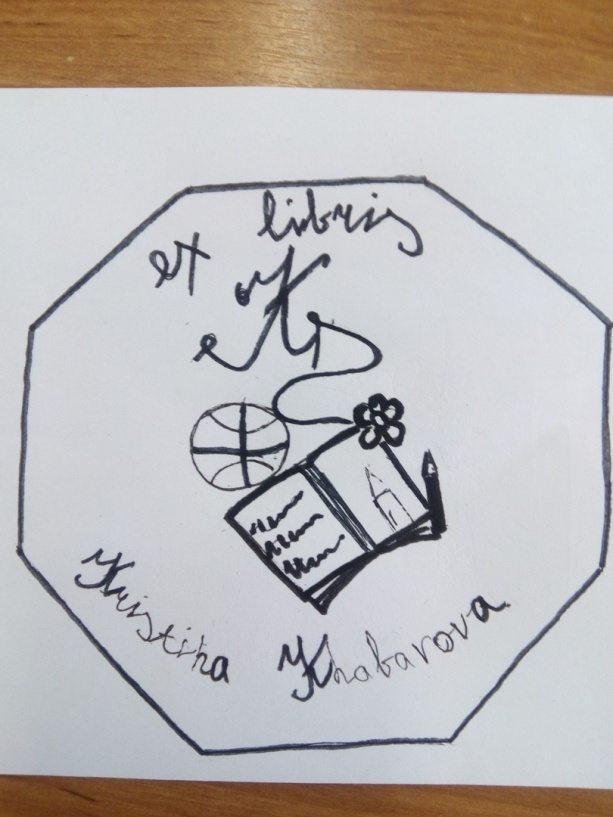 ex libris
K
Kristina Khabarova